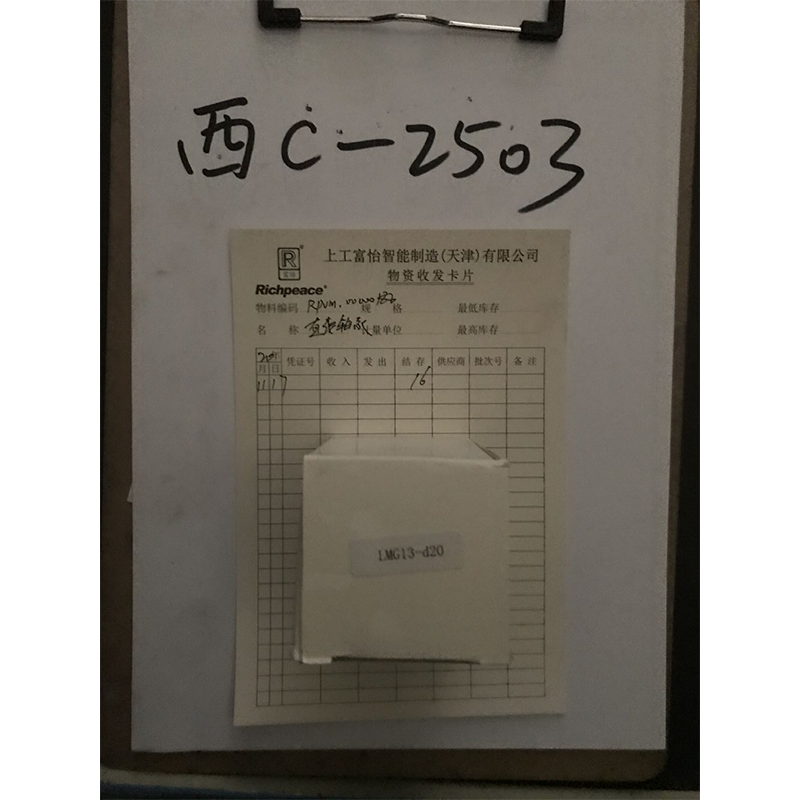 西C-2503
R
富怡
Richpeace
上工富怡智能制造(天津)有限公司
物资收发卡片
物料编码 规 格 最低库存
名 称 直线轴承 计量单位 最高库存
月 日 凭证号 收入 发出 结存 供应商 批次号 备注
11 17 16
LMG13-d20